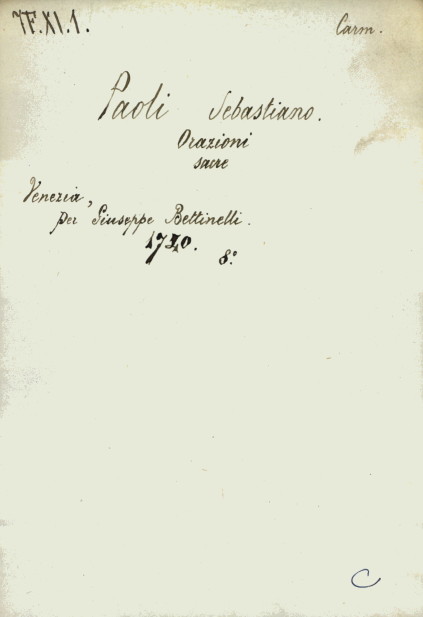 7F.XI.1.
Carm.
Paoli Sebastiano.
Orazioni
sacre
Venezia,
per Giuseppe Bettinelli.
1740.
8º
C